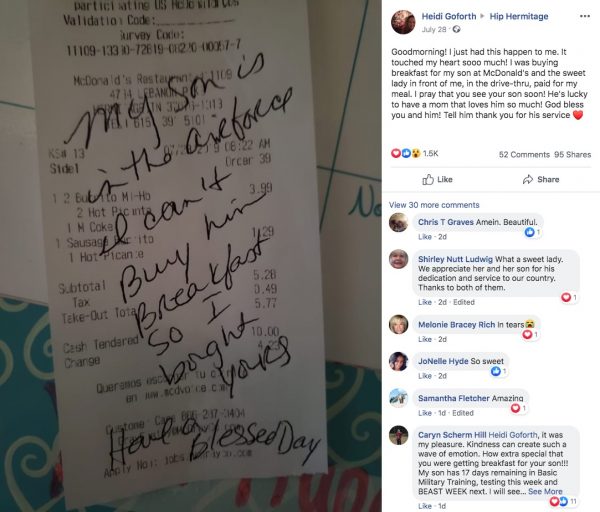 participating US McDonald's
Validation Code:
Survey Code:
McDonald's Restaurant
TN
KS# 13
Side1
08:22 AM
Order 39
1 2 Burrito Ml-HB
3.99
2 Hot Picante
1 M Coke
1 Sausage Burrito
1.29
1 Hot Picante
Subtotal
5.28
Tax
0.49
Take-Out Total
5.77
Cash Tendered
10.00
Change
4.23
Queremos
en www.mcdvoice.com
Apply Now: jobs
My son is
in the airforce
I can't
Buy him
Breakfast
So I
bought
yours
Have a blessed Day
Heidi Goforth ▸ Hip Hermitage
July 28 ·
Goodmorning! I just had this happen to me. It
touched my heart sooo much! I was buying
breakfast for my son at McDonald's and the sweet
lady in front of me, in the drive-thru, paid for my
meal. I pray that you see your son soon! He's lucky
to have a mom that loves him so much! God bless
you and him! Tell him thank you for his service ❤️
1.5K
52 Comments 95 Shares
Like Share
View 30 more comments
Chris T Graves Amein. Beautiful.
1
Like · 2d
Shirley Nutt Ludwig What a sweet lady.
We appreciate her and her son for his
dedication and service to our country.
Thanks to both of them.
1
Like · 2d · Edited
Melonie Bracey Rich In tears😭
1
Like · 2d
JoNelle Hyde So sweet
1
Like · 2d
Samantha Fletcher Amazing
1
Like · 1d · Edited
Caryn Scherm Hill Heidi Goforth, it was
my pleasure. Kindness can create such a
wave of emotion. How extra special that
you were getting breakfast for your son!!!
My son has 17 days remaining in Basic
Military Training, testing this week and
BEAST WEEK next. I will see... See More
11
Like · 1d